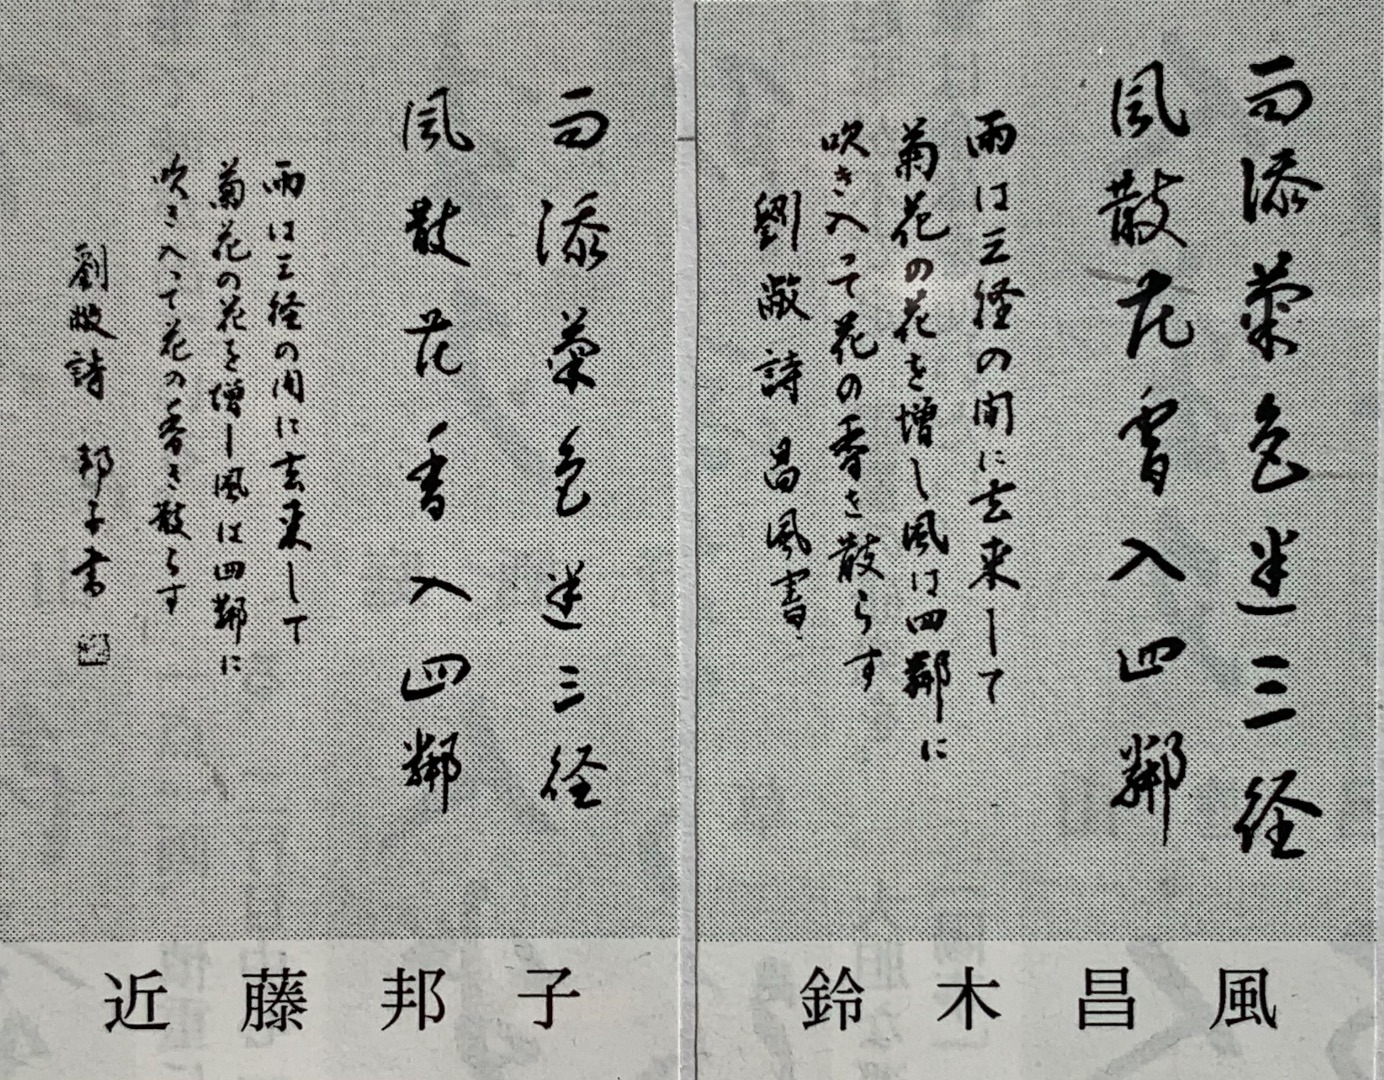 雨添菊色迷三径
風散花香入四鄰
雨は三径の間に去来して
菊花の花を増し風は四鄰に
吹き入って花の香を散らす
劉敞詩 昌風書
鈴木昌風
雨添菊色迷三径
風散花香入四鄰
雨は三径の間に去来して
菊花の花を増し風は四鄰に
吹き入って花の香を散らす
劉敞詩 邦子書
近藤邦子